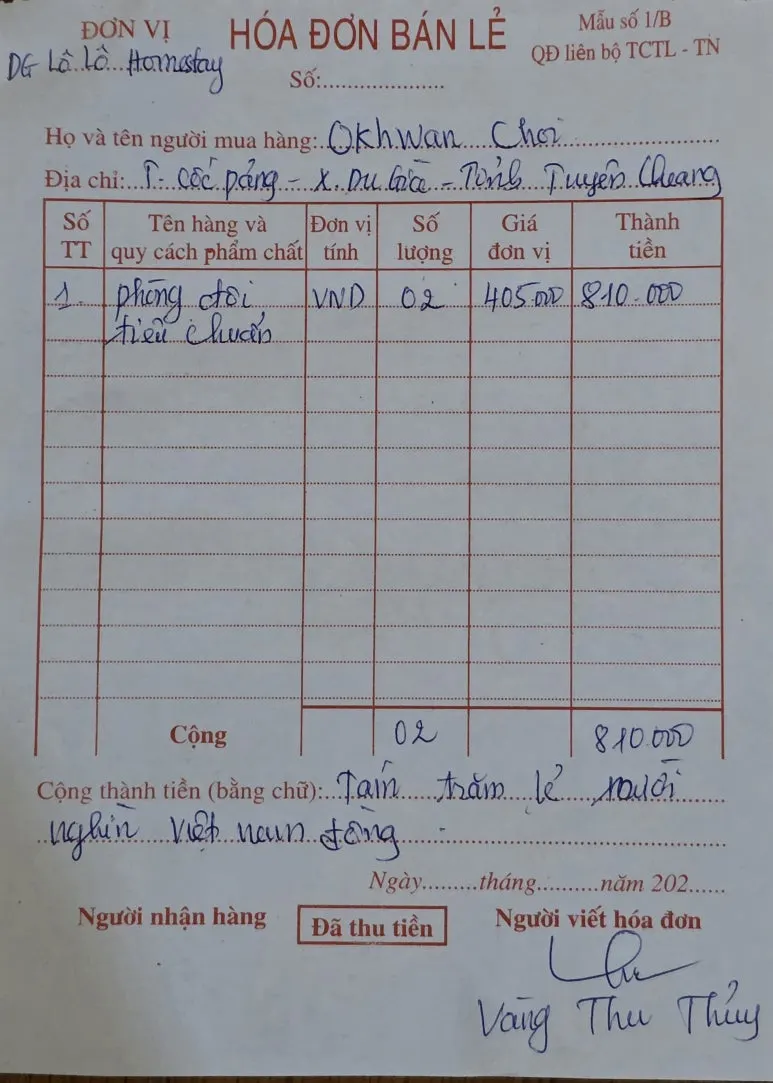 ĐƠN VỊ
DG Lô Lô Homestay
HÓA ĐƠN BÁN LẺ
Số:....................
Mẫu số 1/B
QĐ liên bộ TCTL - TN
Họ và tên người mua hàng: Okhwan Choi
Địa chỉ: T. Cốc Pảng - X. Du Già - Tỉnh Tuyên Quang
Số TT | Tên hàng và quy cách phẩm chất | Đơn vị tính | Số lượng | Giá đơn vị | Thành tiền
1. phòng đôi VND 02 405.000 810.000
tiêu chuẩn
Cộng 02 810.000
Cộng thành tiền (bằng chữ): Tám trăm lẻ mười
nghìn việt nam đồng
Ngày.........tháng..........năm 202......
Người nhận hàng
Đã thu tiền
Người viết hóa đơn
Vàng Thu Thủy